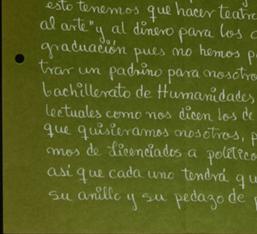 esto tenemos que hacer teatro
al arte" y al dinero para los
graduación pues no hemos
trar un padrino para nosotro
bachillerato de Humanidades
lectuales como nos dicen los de
que quisieramos nosotros,
mos de licenciados a politico
así que cada uno tendrá qu
su anillo y su pedazo de